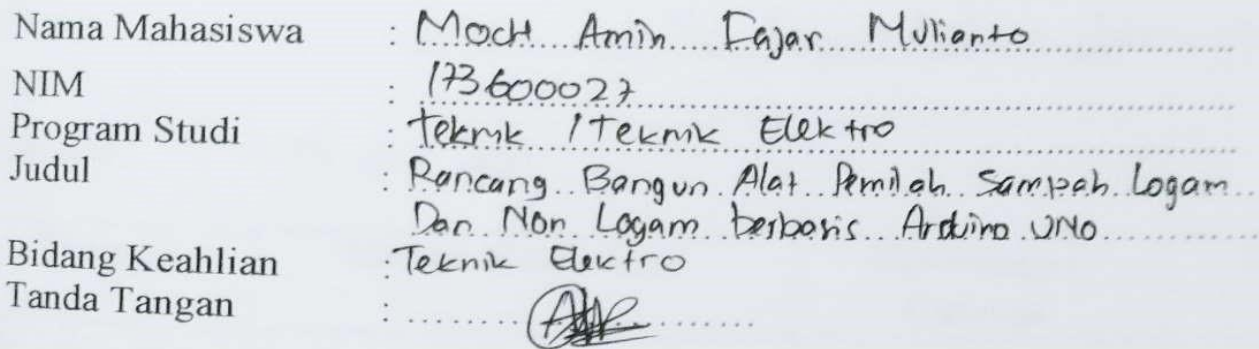 Nama Mahasiswa : Moch Amin Fajar Mulianto
NIM : 173600027
Program Studi : Teknik / Teknik Elektro
Judul : Rancang Bangun Alat Pemilah Sampah Logam
Dan Non Logam berbasis Arduino UNO
Bidang Keahlian : Teknik Elektro
Tanda Tangan :